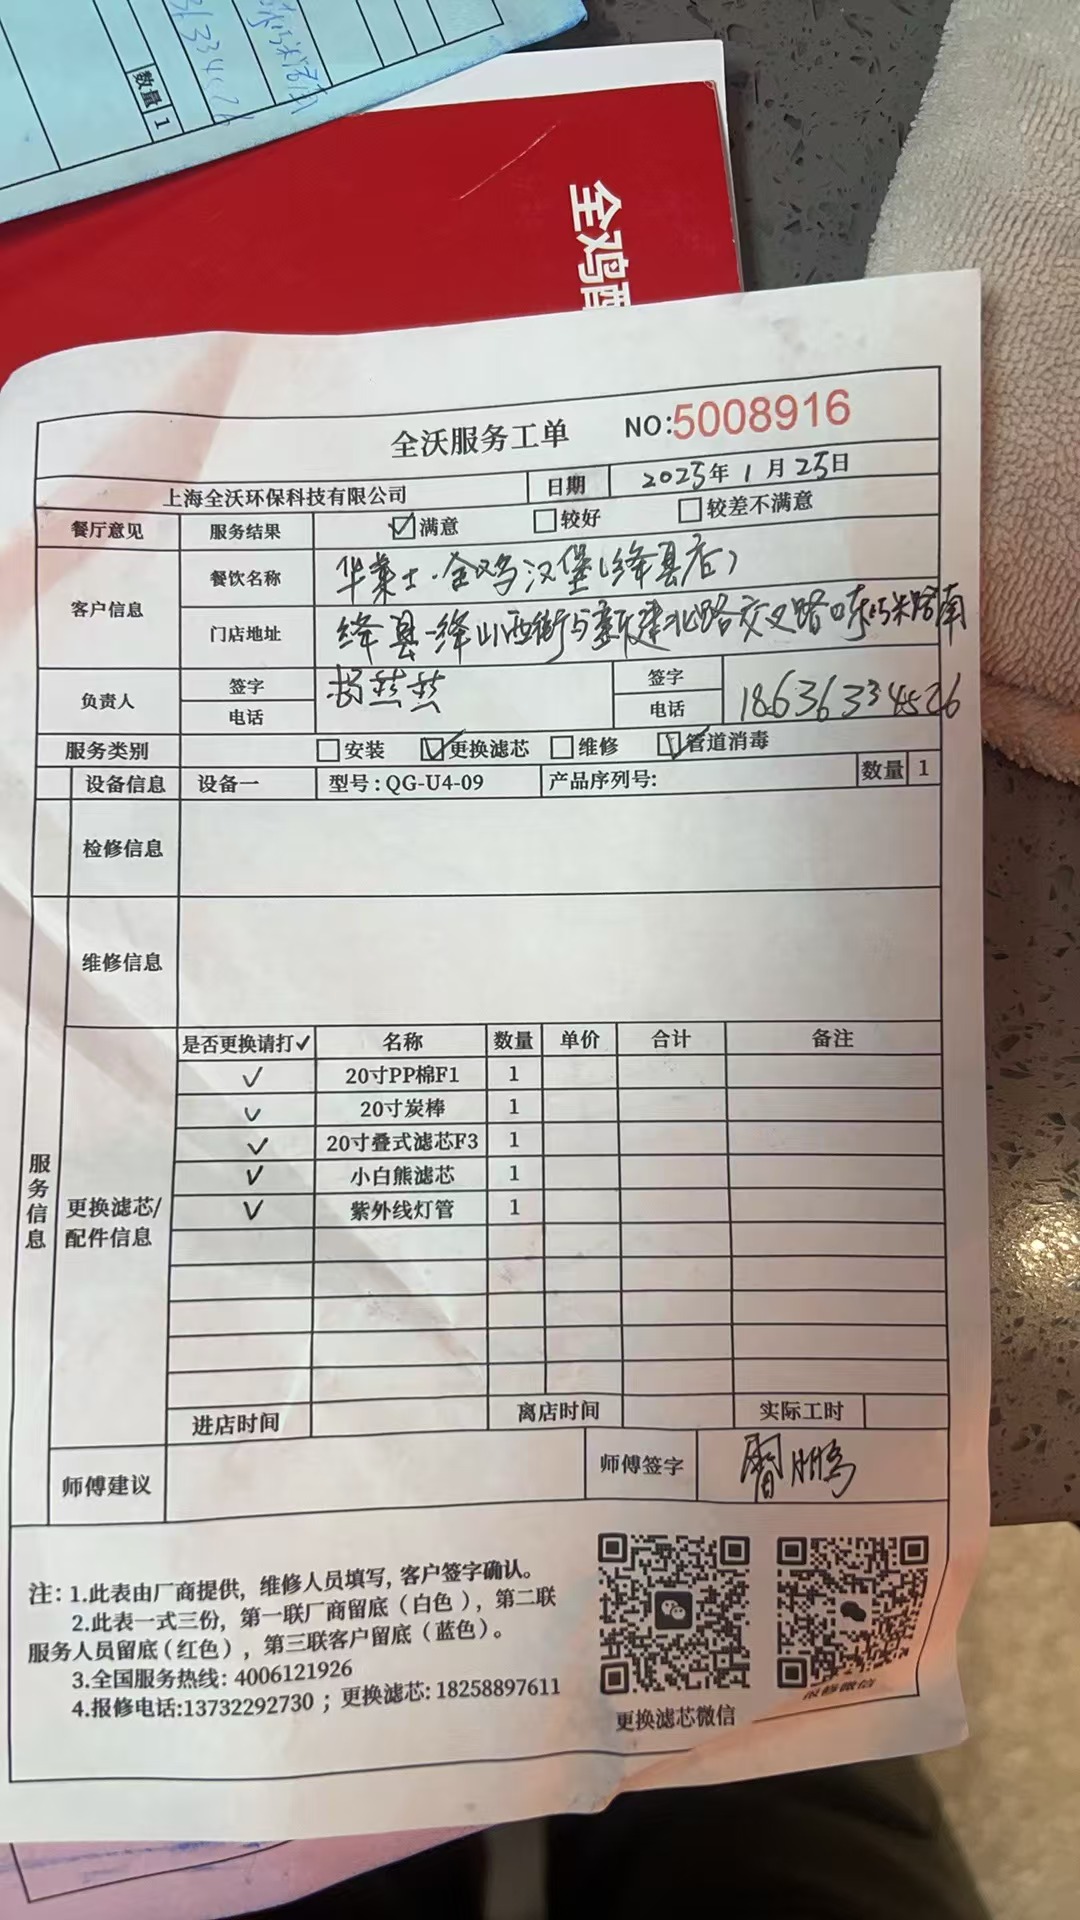 数量 1
全鸡
全沃服务工单 NO:5008916
上海全沃环保科技有限公司 日期 2025年1月25日
餐厅意见 服务结果 ☑满意 □较好 □较差不满意
客户信息 餐饮名称 华莱士·全鸡汉堡(绛县店)
门店地址 绛县-绛山西街与新建北路交叉路口东 米路南
负责人 签字 杨燕燕 签字
电话 电话 18636334526
服务类别 □安装 ☑更换滤芯 □维修 ☑管道消毒
设备信息 设备一 型号:QG-U4-09 产品序列号: 数量 1
检修信息
维修信息
服务信息
更换滤芯/配件信息
是否更换请打✓ 名称 数量 单价 合计 备注
✓ 20寸PP棉F1 1
✓ 20寸炭棒 1
✓ 20寸叠式滤芯F3 1
✓ 小白熊滤芯 1
✓ 紫外线灯管 1
进店时间 离店时间 实际工时
师傅建议 师傅签字
注:1.此表由厂商提供,维修人员填写,客户签字确认。
2.此表一式三份,第一联厂商留底(白色),第二联
服务人员留底(红色),第三联客户留底(蓝色)。
3.全国服务热线:4006121926
4.报修电话:13732292730;更换滤芯:18258897611
更换滤芯微信
报修微信